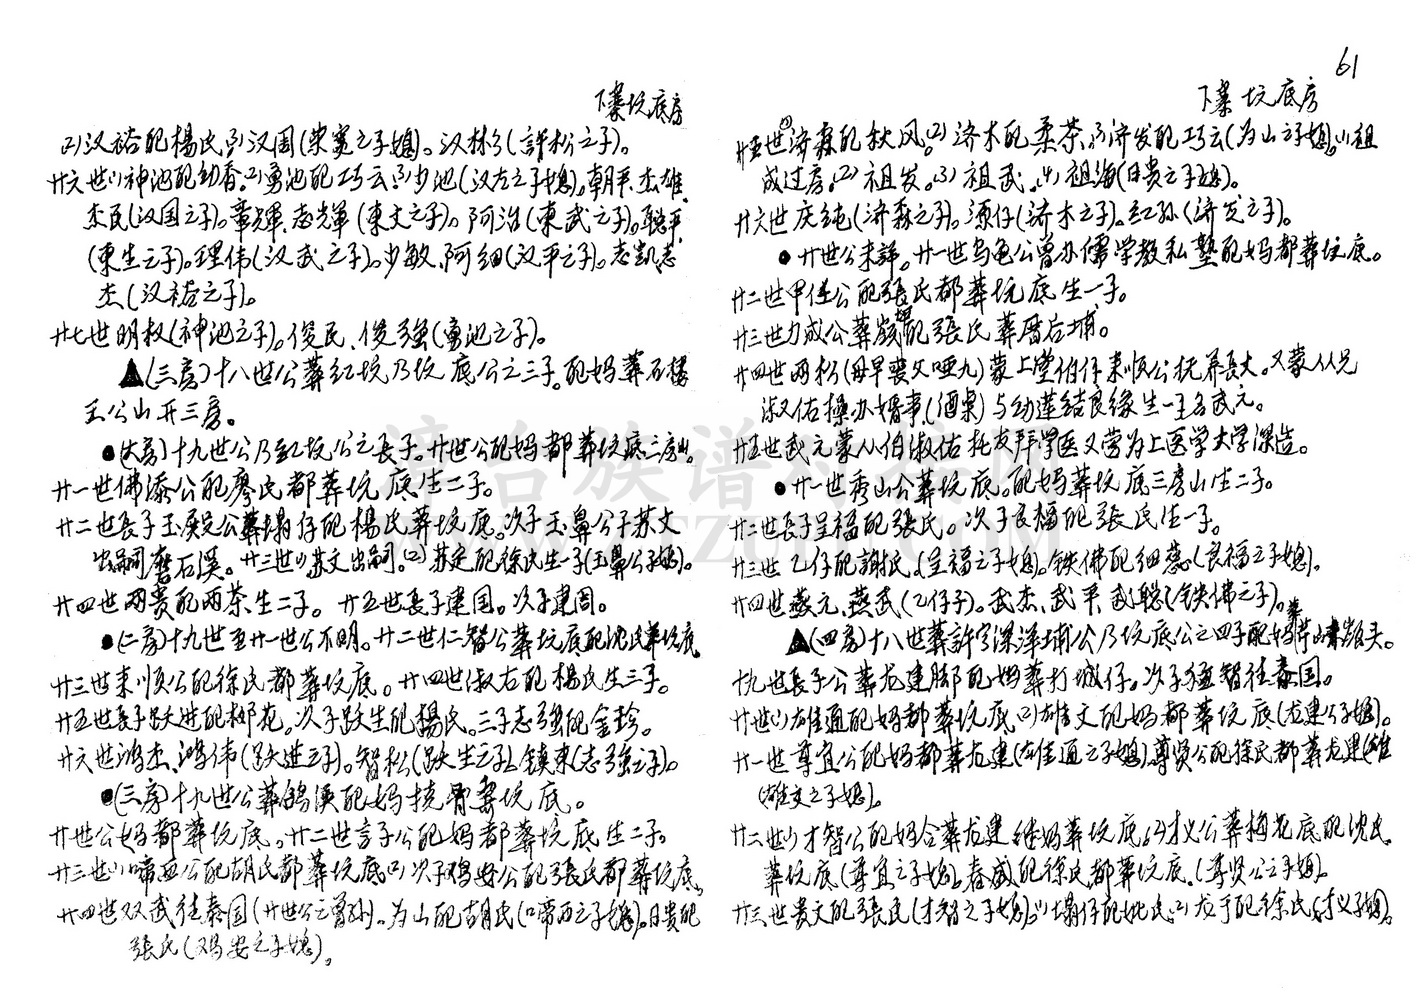 61
下寨坑底房
(2)汉裕配楊氏(3)汉周(荣宽之子媳)。汉林(詳松之子)。
廿六世(1)神池配幼香。(2)勇池配巧云(3)少池(汉左之子媳)。朝平、杰雄、
杰民(汉国之子)。章輝、志輝(東文之子)。阿浩(東武之子)。聪平
(東生之子)。理伟(汉武之子)。少敏、阿细(汉平之子)。志凯、志
杰(汉裕之子)。
廿七世明权(神池之子)。俊民、俊强(勇池之子)。
▲(三房)十八世公葬红坟乃坑底公之三子。配妈葬石楼
王公山开三房。
●(大房)十九世公乃红坟公之長子。廿世公配妈都葬坟底三房山。
廿一世佛添公配廖氏都葬坑底生二子。
廿二世長子玉殿公葬塌仔配楊氏葬坟底。次子玉鼻公子苏文
出嗣磨石溪。廿三世(1)苏文出嗣。(2)苏定配徐氏生一子(玉鼻公子媳)。
廿四世两贵配两茶、生二子。廿五世長子建国。次子建周。
●(二房)十九世至廿一世公不明。廿二世仁智公葬坑底配沈氏葬坑底。
廿三世来順公配徐氏都葬坟底。廿四世淑右配楊氏生三子。
廿五世長子跃进配柳花。次子跃生配楊氏。三子志强配金珍。
廿六世鸿杰、鸿伟(跃进之子)。智松(跃生之子)。镇東(志强之子)。
●(三房)十九世公葬鸽溪配妈撓骨葬坑底。
廿世公妈都葬坑底。廿二世言子公配妈都葬坑底生二子。
廿三世(1)啼西公配胡氏都葬坑底(2)次子鸡安公配張氏都葬坟底。
廿四世双武往泰国(廿世公之曾孙)。为山配胡氏(啼西之子媳)。日貴配
張氏(鸡安之子媳)。
下寨坑底房
廿五世(1)济森配秋风。(2)济木配柔茶、(3)济发配巧云(为山之子媳)。(1)祖
成过房。(2)祖发。(3)祖武。(4)祖海(日贵之子媳)。
廿六世庆纯(济森之子)。源仔(济木之子)。红孙(济发之子)。
●廿世公未詳。廿一世乌龟公曾办儒学教私塾配妈都葬坟底。
廿二世甲任公配張氏都葬坑底生一子。
廿三世力成公葬嶺配張氏葬厝后埔。
廿四世两松(母早喪父哑九)蒙上堂伯仔来順公抚养長大。又蒙从兄
淑佑操办婚事(酒桌)与幼莲结良缘生一子名武元。
廿五世武元蒙从伯淑佑托友拜学医又营为上医学大学深造。
●廿一世秀山公葬坟底。配妈葬坟底三房山生二子。
廿二世長子呈福配張氏。次子良福配張氏生一子。
廿三世乙仔配謝氏(呈福之子媳)。铁佛配细蕊(良福之子媳)。
廿四世燕元、燕武(乙仔子)。武杰、武平、武聪(铁佛之子)。
▲(四房)十八世葬許字深洋埔公乃坑底公之四子配妈葬芹山寨嶺头。
十九世長子公葬龙建脚配妈葬打城仔。次子猛智往泰国。
廿世(1)雄通配妈都葬坟底(2)雄文配妈都葬坟底(龙建公子媳)。
廿一世尊宜公配妈都葬龙建(雄通之子媳)尊贤公配徐氏都葬龙建(雄
(雄文之子媳)。
廿二世(1)才智公配妈合葬龙建继妈葬坑底(2)才义公葬梅花底配沈氏
葬坑底(尊宜之子媳)。春威配徐氏都葬坑底。(尊贤公之子媳)。
廿三世贵文配張氏(才智之子媳)。(1)塌仔配姚氏(2)友于配徐氏(才义子媳)。